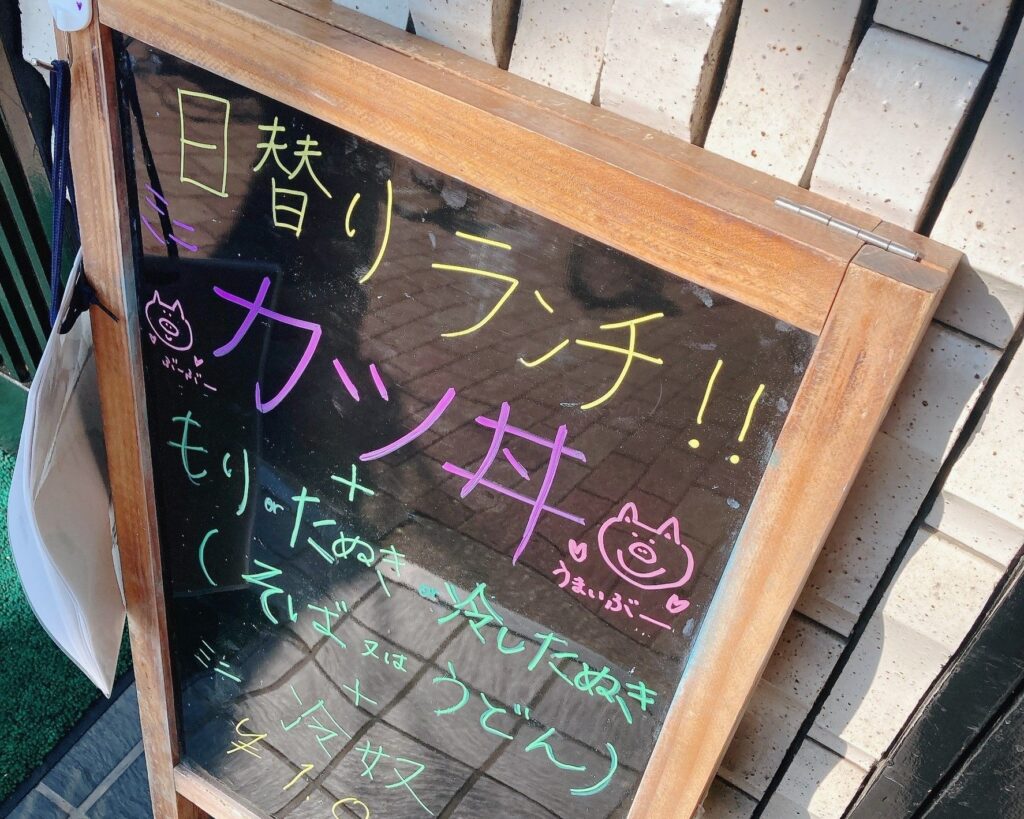 日替りランチ!!
ミニ
カツ丼
ぶーぶー
うまいぶー
+
もり or たぬき or 冷したぬき
(そば 又は うどん)
+
ミニ 冷奴
¥1.0